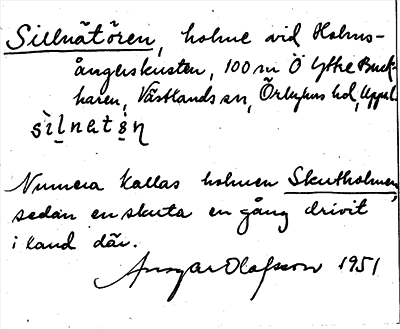 Sillnätören, holme vid Holms-
ångerskusten, 100 m Ö Yttre Buck-
haren, Västlands sn, Örbyhus hd, Uppl.
sìlnetə̀ṇ
Numera kallas holmen Skutholmen,
sedan en skuta en gång drivit
i land där.
Ansgar Olofsson 1951